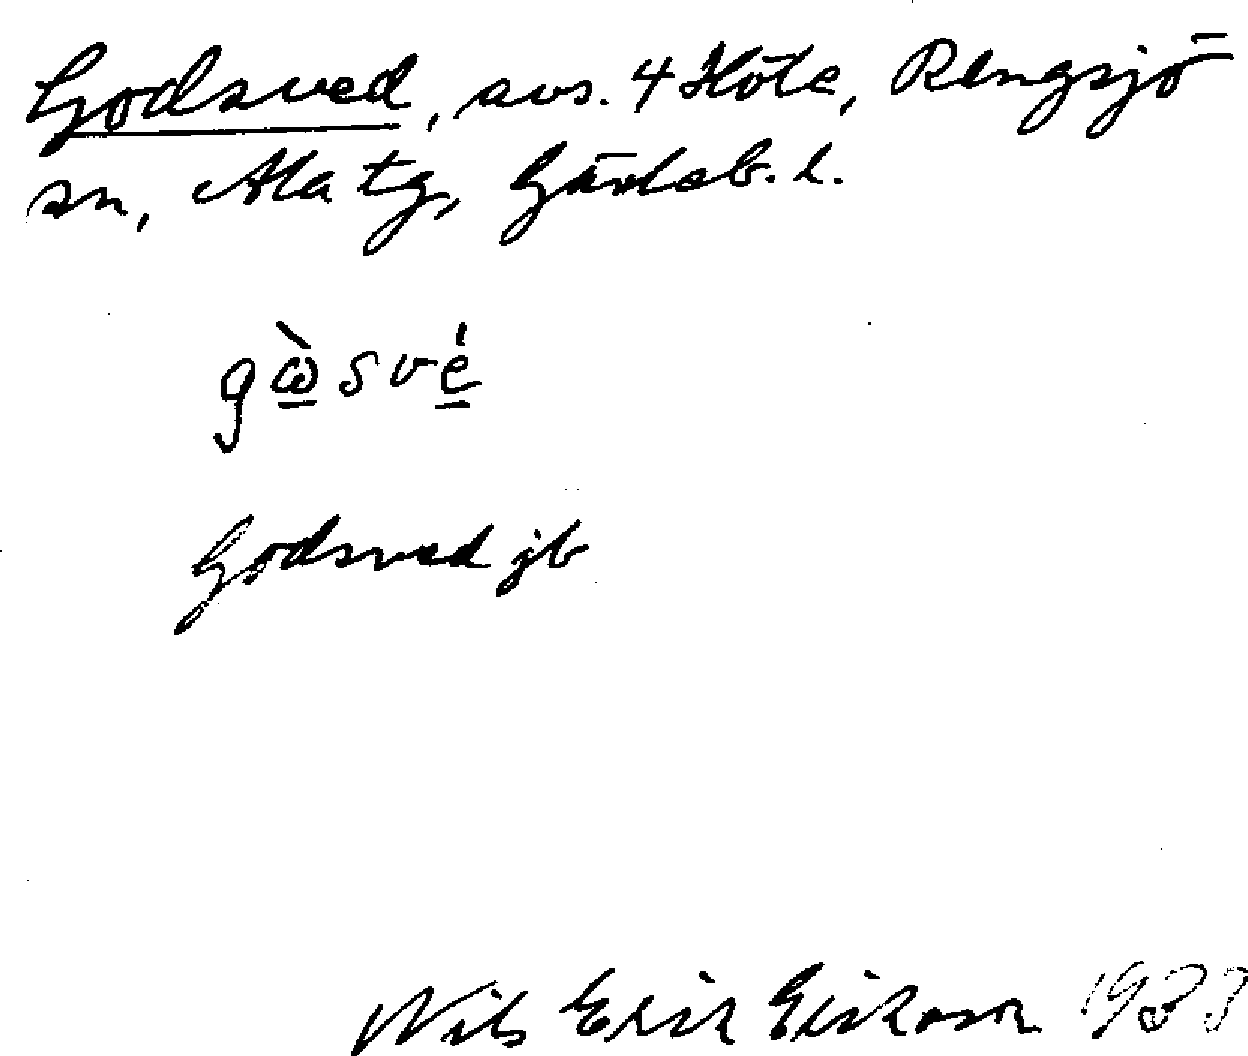 Godsved, avs. 4 Höle, Rengsjö
sn, Ala tg, Gävleb. l.
gὼ̲své̲
Godsved jb
Nils Erik Erikson